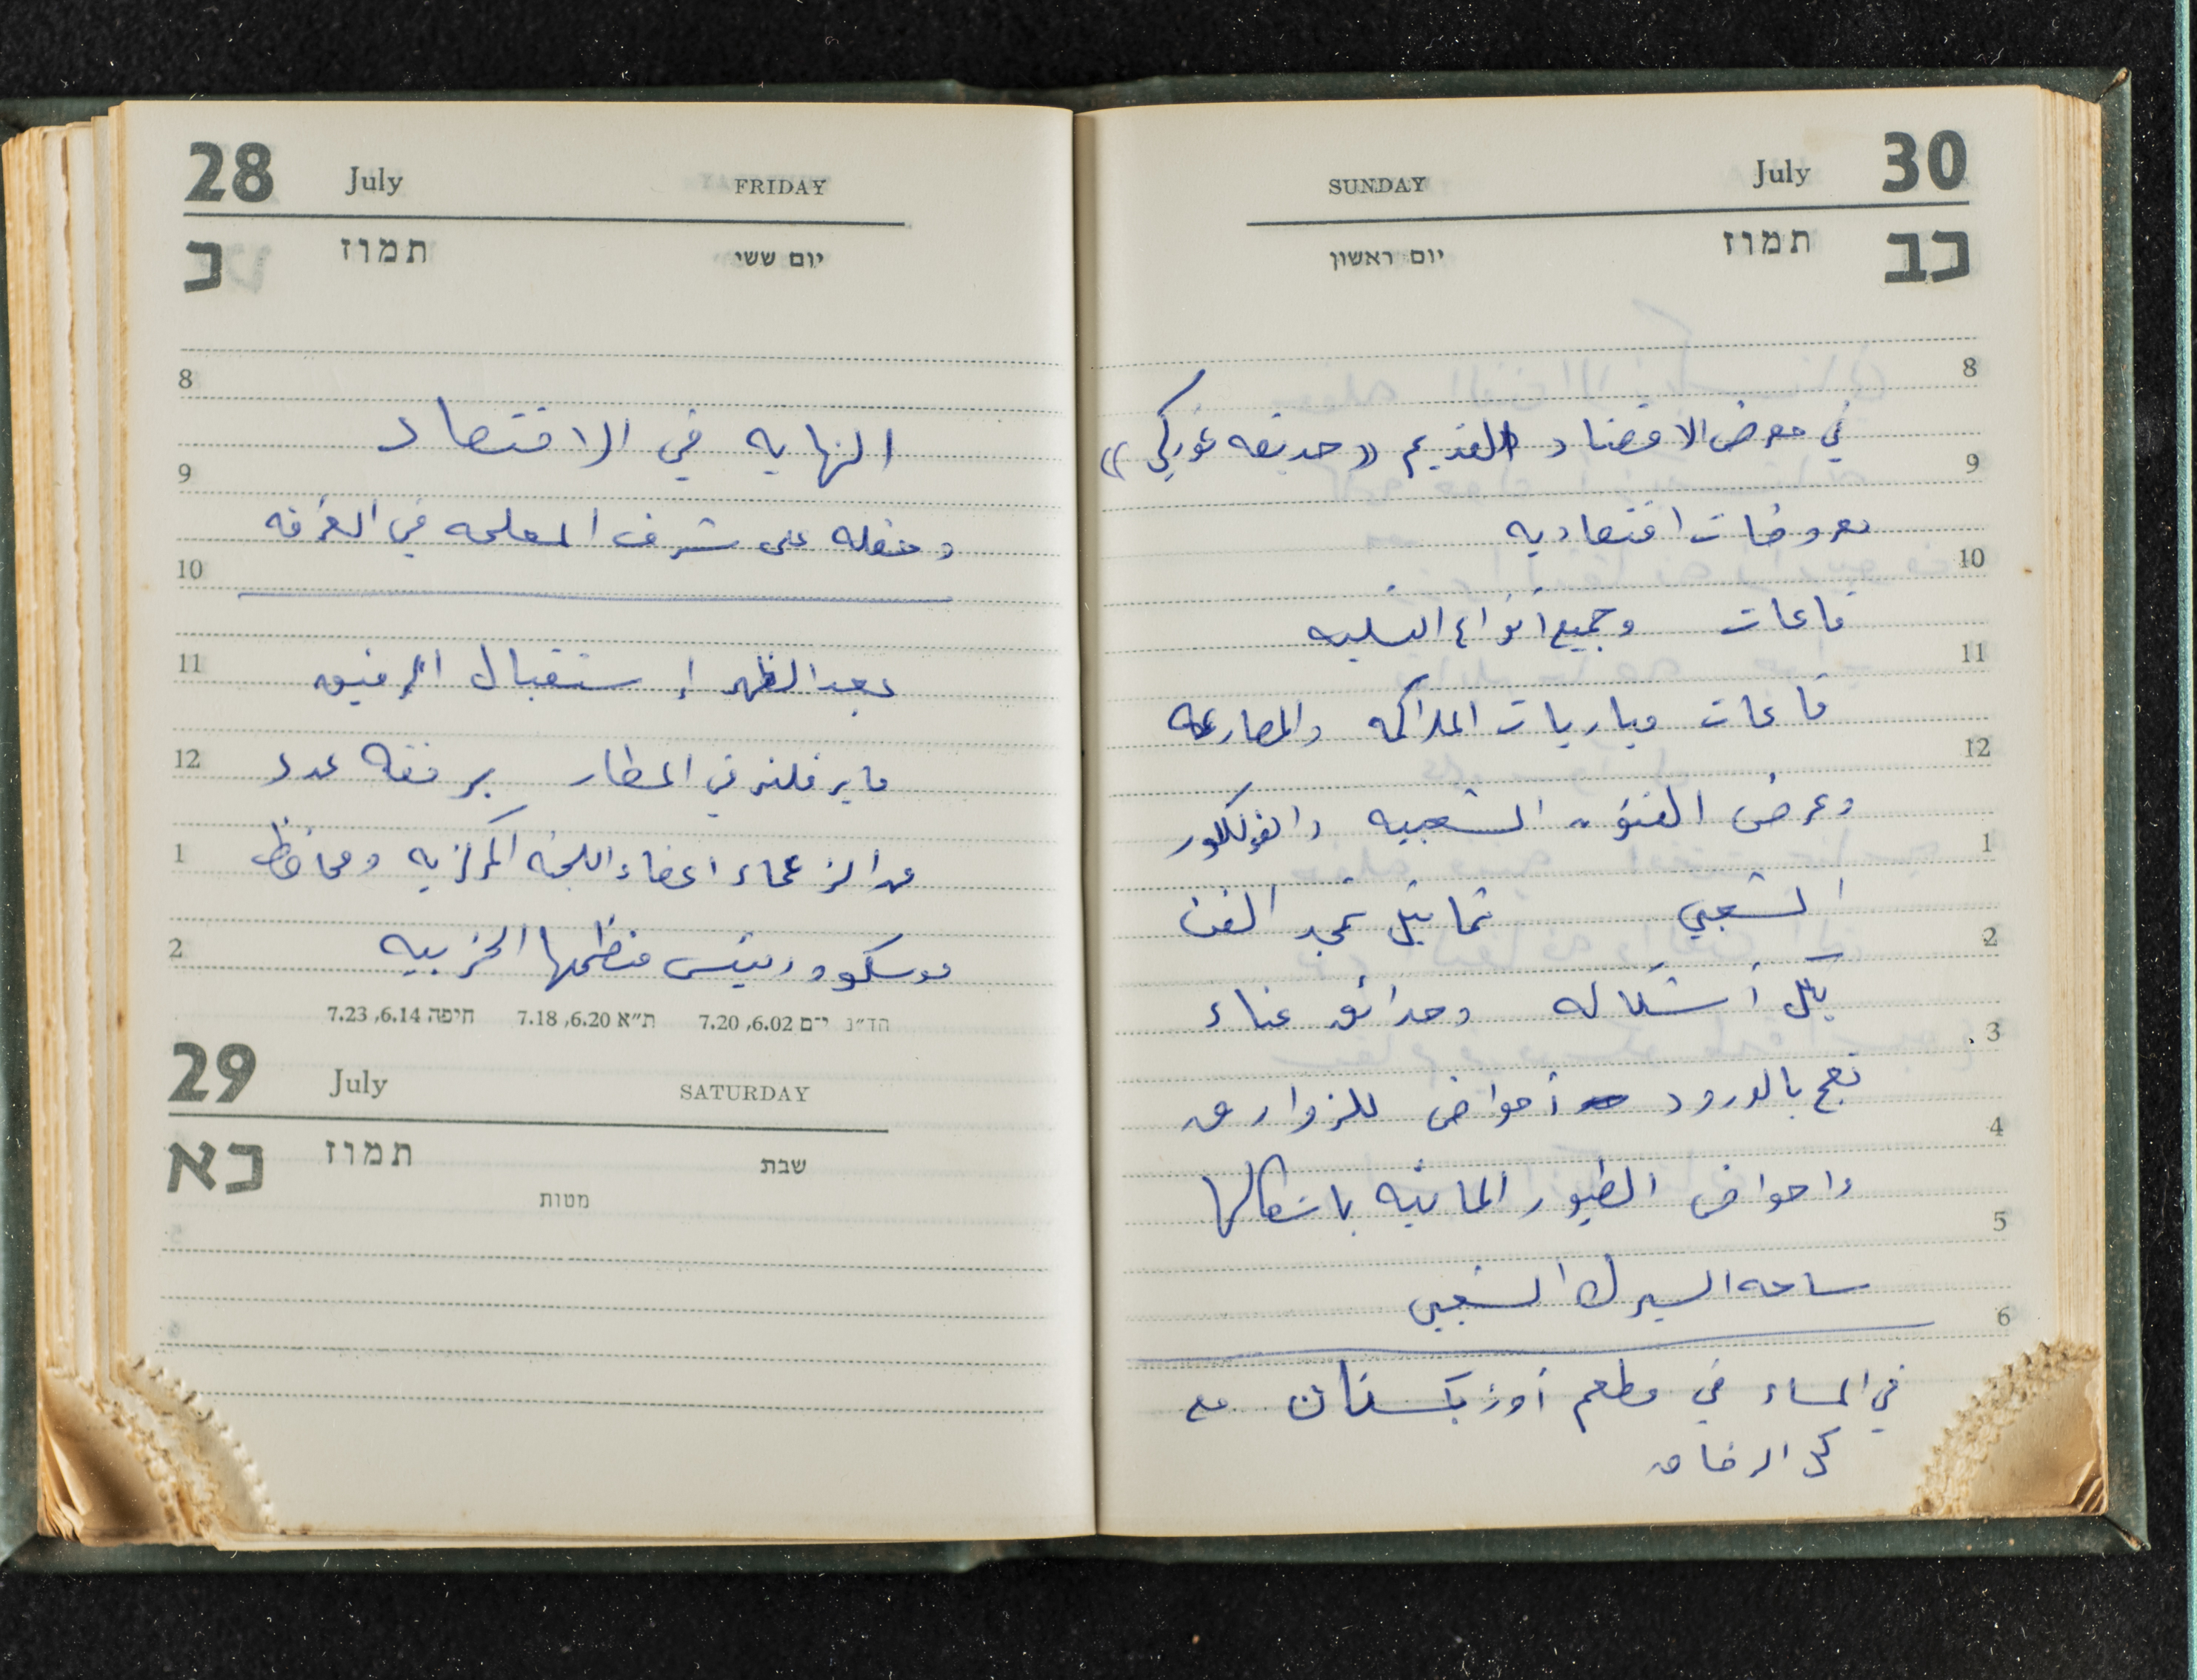 28 July FRIDAY
כ תמוז יום ששי
8
النهايه في الاقتصاد
9
وحفله على شرف المعلمه في الغرفه
10
بعد الظهر إستقبال الرفيق
11
ماير فلنر في المطار برفقة عدد
12
من الزعماء اعضاء اللجنه المركزيه ومحافظ
1
موسكو ورئيس منظمتها الحزبيه
2
הד״נ י־ם 6.02, 7.20 ת״א 6.20, 7.18 חיפה 6.14, 7.23
29 July SATURDAY
כא תמוז שבת
מטות
SUNDAY July 30
יום ראשון תמוז כב
8
في معرض الاقتصاد القديم «حديقه غوركي»
9
معروضات اقتصاديه
10
قاعات وجميع أنواع التسليه
11
قاعات مباريات الملاكمه والمصارعه
12
وعرض الفنون الشعبيه والفولكلور
1
الشعبي تماثيل تمجد الفن
2
بكل أشكاله وحدائق غناء
3
تعج بالورود أحواض للزوارق
4
واحواض الطيور المائيه باشكالها
5
ساحه السيرك الشعبي
6
في المساء في مطعم أوزبكستان مع
كل الرفاق